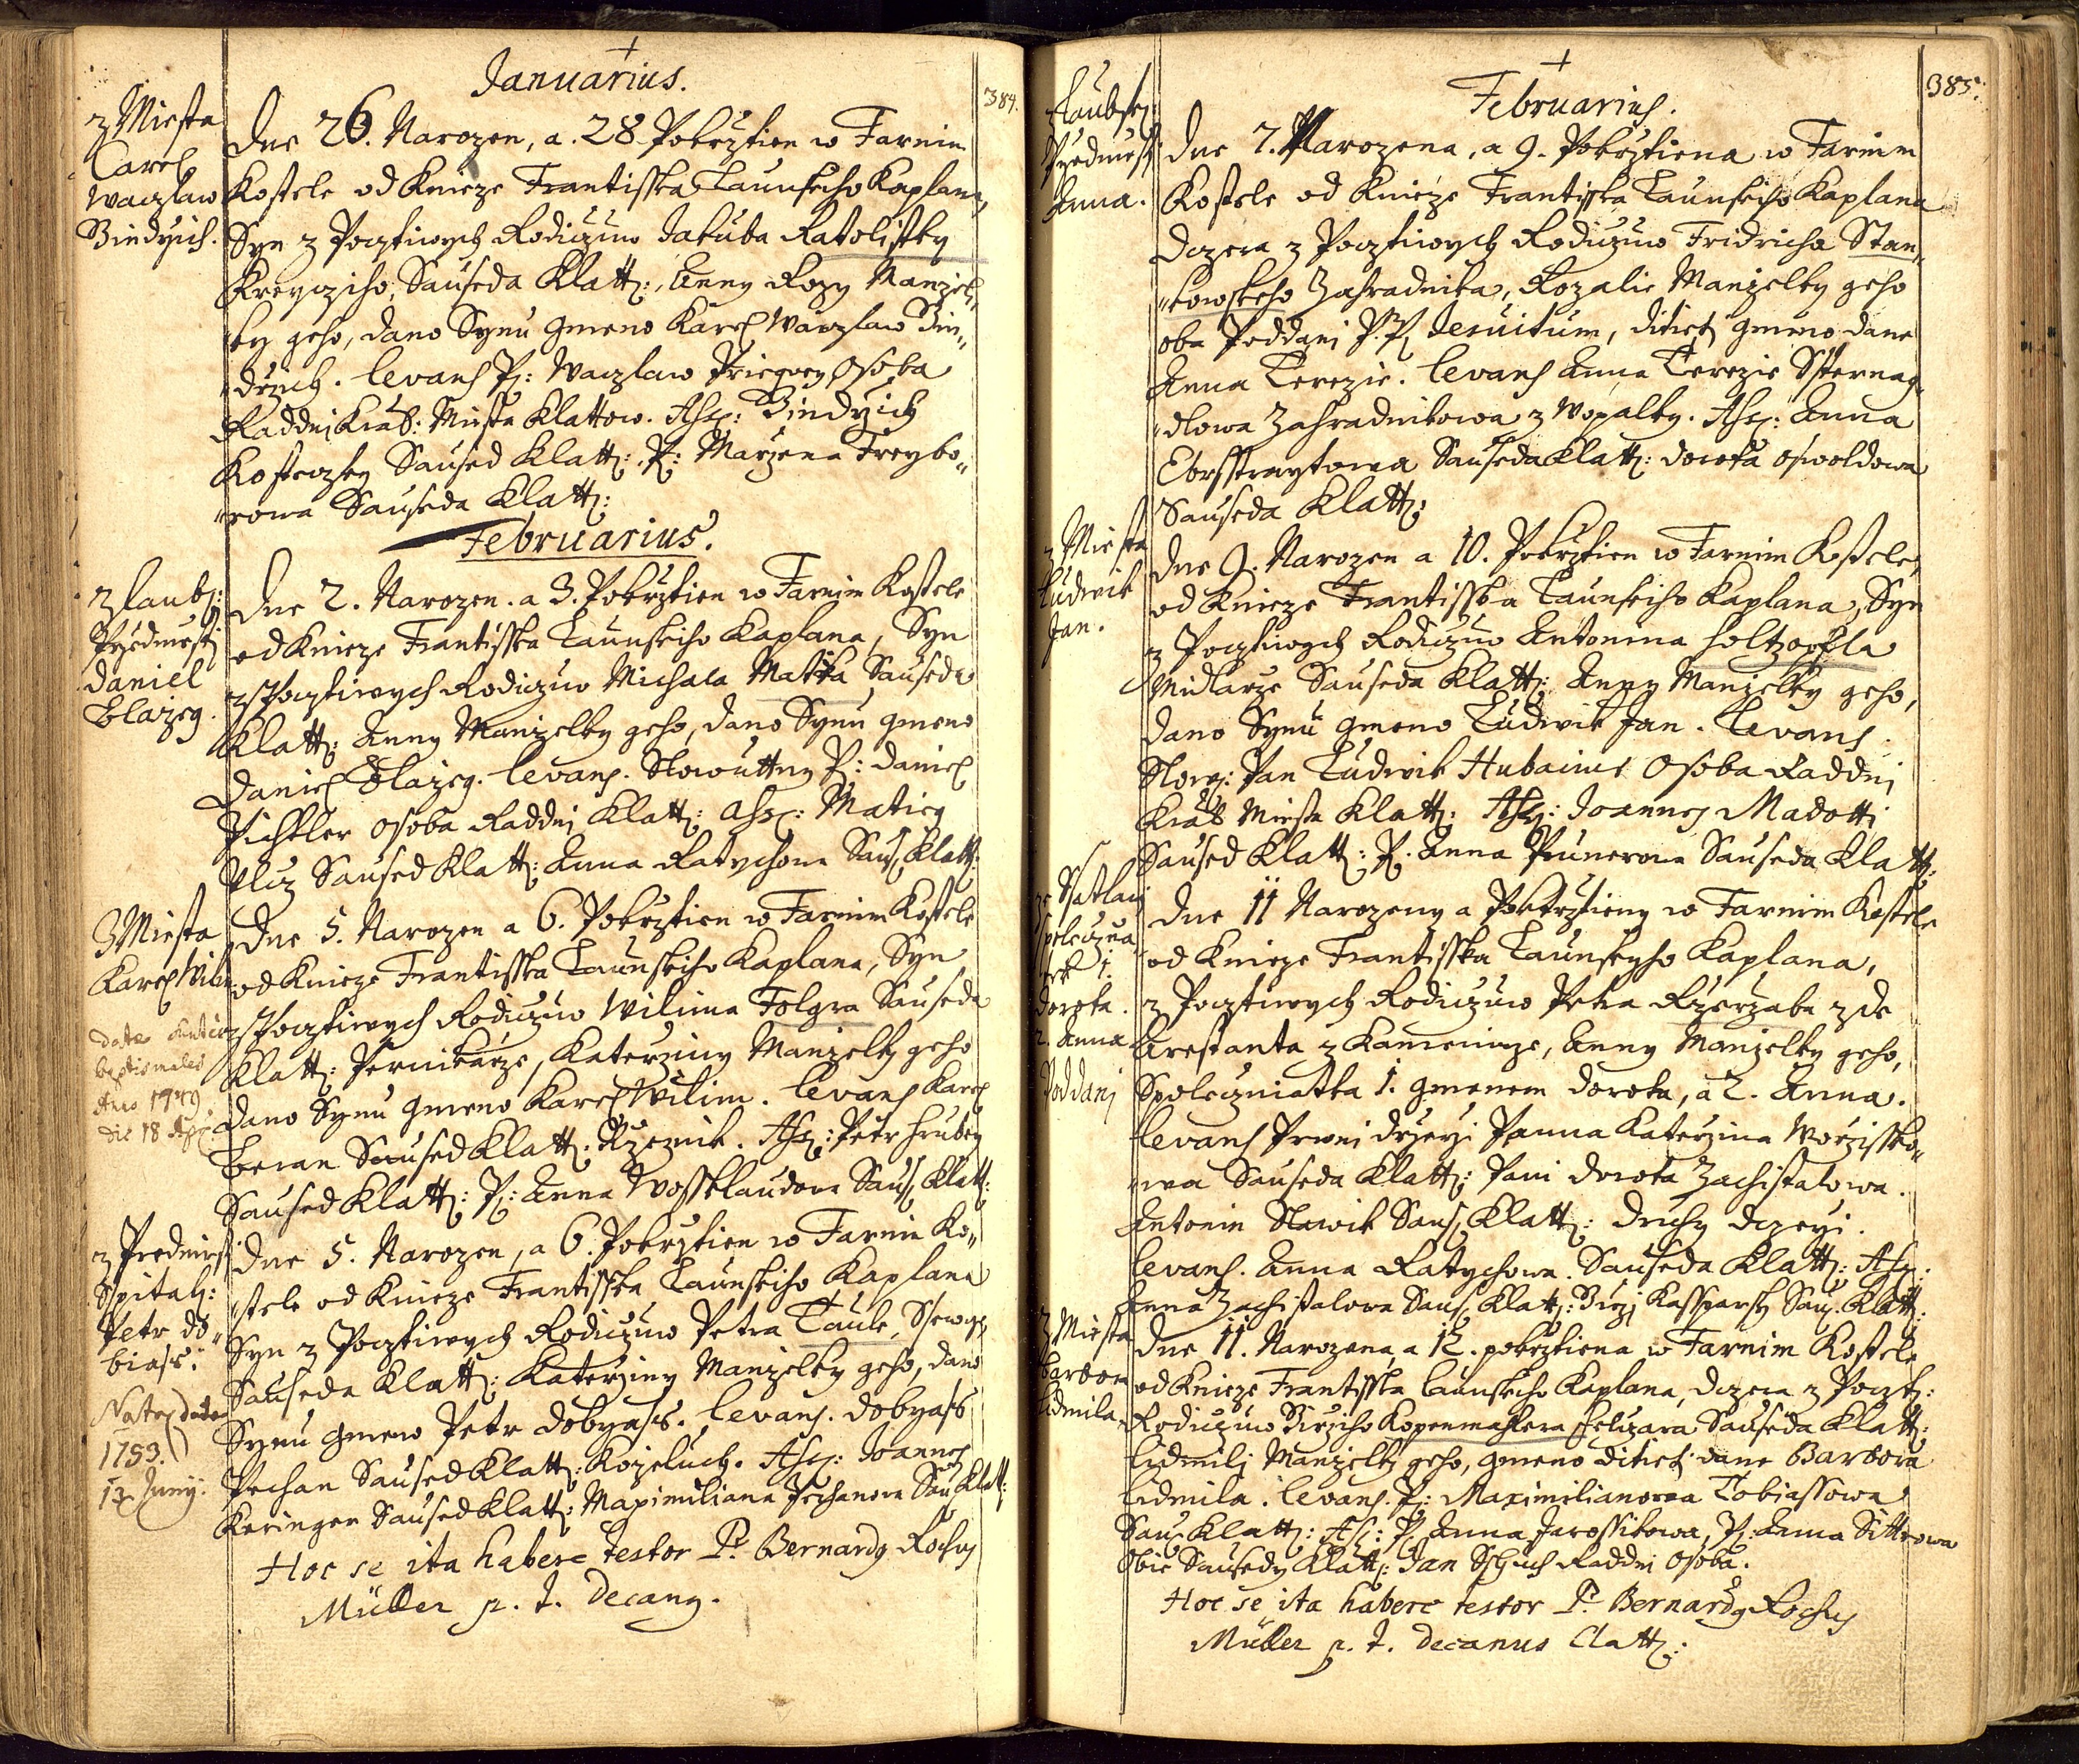 Januarius.
384.
z Miesta
Carel
Waczlaw
Bindrzich.
Dne 26. Narozen, a. 28 Pokrztien w Farnim
Kostele od Knieze Frantisska Taunskiho Kaplana,
Syn z Pocztiwych Rodiczuw Jakuba Ratolistky
Kreycziho, Sauseda Klatt: Anny Rozy Manzel„
„ky geho, dano Synu gmeno Karel Waczlaw Bin„
„drzich. Levans P: Waczlaw Osoba
Raddni Kral: Miesta Klattow. Ass: Bindrzich
Kosteczky Saused Klatt: P: Marzena Freybo„
„rowa Sauseda Klatt:
Februarius.
z Laub:
Przedmesti
Daniel
Blazeg.
Dne 2. Narozen. a 3. Pokrztien w Farnim Kostele
od Knieze Frantisska Taunskiho Kaplana, Syn
z Pocztiwych Rodiczuw Michala Matka Sauseda
Klatt: Anny Manzelky geho, dano Synu gmeno
Daniel Blazeg. Levans. Slowutny P: Daniel
Pichler Osoba Raddni Klatt: Ass: Matieg
Saused Klatt: Anna Ratychowa Saus. Klatt:
Z Miesta
Karel Wilim
Date
baptismales
Anno 1749
die 18 Apr
Dne 5. Narozen a 6. Pokrztien w Farnim Kostele
od Knieze Frantisska Taunskiho Kaplana, Syn
z Pocztiwych Rodiczuw Wilima Folgra Sauseda
Klatt: Pernikarze, Katerziny Manzelky geho
dano Synu gmeno Karel Wilim. Levans Karel
Beran Saused Klatt. Rzeznik. Ass: Petr Hruby
Saused Klatt: P: Anna Wosklaudowa Saus. Klatt:
z Predmiest
Sspital:
Petr Do„
biass:
Natus dato
1753.
13 Juny.
Dne 5. Narozen, a 6. Pokrztien w Farnim Ko„
„stele od Knieze Frantisska Taunskiho Kaplana
Syn z Pocztiwych Rodiczuw Petra Taule, Ssewcze
Sauseda Klatt: Katerziny Manzelky geho, dano
Synu gmeno Petr Dobyass. Levans. Dobyass
Pechan Saused Klatt: Kozeluch. Ass: Joannes
Keringer Saused Klatt: Maximiliana Pechanowa Sau. Klatt:
Hoc se ita habere testor P. Bernardg Rochus
Müller p. t. Decang.
Februarius.
385.
Laubsk:
Przedmest
Anna.
Dne 7. Narozena, a 9. Pokrztiena w Farnim
Kostele od Knieze Frantisska Taunskiho Kaplana
Dczera z Pocztiwych Rodiczuw Fridricha Stan„
„kowskeho Zahradnika, Rozalie Manzelky geho
oba Poddani P.P. Jesuitum, ditieti gmeno dane
Anna Terezie. Levans Anna Terezie Ssternag„
„dlowa Zahradnikowa z Wopalky. Ass: Anna
Sauseda Klatt: Dorota Oswoldowa
Sauseda Klatt:
z Miesta
Ludwik
Jan.
Dne 9. Narozen a 10. Pokrztien w Farnim Kostele,
od Knieze Frantisska Taunskiho Kaplana, Syn
z Pocztiwych Rodiczuw Antonina Holtzopfla
Midlarze Sauseda Klatt: Anny Manzelky geho,
dano Synu gmeno Ludwik Jan. Levans.
Slow: Pan Ludwik Hubaine Osoba Raddni
Kral Miesta Klatt: Ass: Joannes Madotti
Saused Klatt: P. Anna Prunerowa Sauseda Klatt:
ze Ssatlaw
spoleczna
tek 1.
Dorota.
2. Anna
Poddani
Dne 11 Narozeny a Pokrztieny w Farnim Kostele
od Knieze Frantisska Taunskyho Kaplana,
z Pocztiwych Rodiczuw Petra Rzerzaba zde
Arestanta z Kamenicze, Anny Manzelky geho,
Spoleczniatka 1. gmenem Dorota, a 2. Anna.
Levans Prwni dczeyi Panna Katerzina Worzissko„
„wa Sauseda Klatt: Pani Dorota Zachistalowa.
Antonin Slawik Saus. Klatt: druhy dczeyi.
Levans. Anna Ratychowa. Sauseda Klatt: Ass:
Anna Zachistalowa Saus. Klatt: Girzi Kassparsky Sau. Klatt:
z Miesta
Barbora
Lidmila
Dne 11. Narozena, a 12. pokrztiena w Farnim Kostele
od Knieze Frantisska Taunskeho Kaplana, dczera z Poczt:
Rodiczuw Girziho Kopenmahlera Sauseda Klatt:
Lidmili Manzelky geho, gmeno ditieti dane Barbora
Lidmila. Levans. P: Maximilianowa Tobiassowa
Sau. Klatt: Ass: P. Anna Jarossikowa, P: Anna Sittrowa
Obie Sausedy Klatt: Jan Raddni Osoba.
Hoc se ita habere testor P. Bernardg Rochus
Müller p. t. Decanus Clatt: